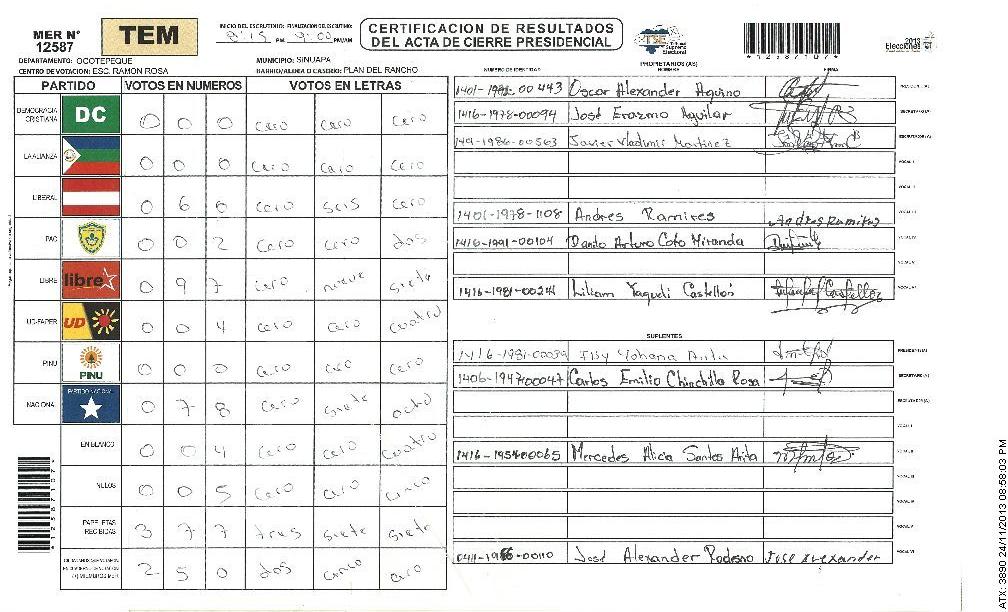 MER N° 12587
TEM
INICIO DEL ESCRUTINIO: FINALIZACION DEL ESCRUTINIO:
8:15 PM 9:00 PM/AM
CERTIFICACION DE RESULTADOS
DEL ACTA DE CIERRE PRESIDENCIAL
TSE
Tribunal Supremo Electoral
2013
Elecciones
*12587107*
DEPARTAMENTO: OCOTEPEQUE MUNICIPIO: SINUAPA
CENTRO DE VOTACION: ESC. RAMON ROSA BARRIO/ALDEA O CASERIO: PLAN DEL RANCHO
PARTIDO VOTOS EN NUMEROS VOTOS EN LETRAS
DEMOCRACIA CRISTIANA DC 0 0 0 cero cero cero
LA ALIANZA 0 0 0 cero cero cero
LIBERAL 0 6 0 cero seis cero
PAC 0 0 2 cero cero dos
LIBRE libre 0 9 7 cero nueve siete
UD-FAPER UD 0 0 4 cero cero cuatro
PINU PINU 0 0 0 cero cero cero
NACIONAL PARTIDO NACIONAL 0 7 8 cero siete ocho
EN BLANCO 0 0 4 cero cero cuatro
NULOS 0 0 5 cero cero cinco
PAPELETAS RECIBIDAS 3 7 7 tres siete siete
2 5 0 dos cinco cero
*12587107*
PROPIETARIOS (AS)
NUMERO DE IDENTIDAD NOMBRE FIRMA
00443 Oscar Alexander Aquino PRESIDENTE(A)
1416-1978-00094 José Erazmo Aguilar SECRETARIO(A)
Javier Vladimir Martinez ESCRUTADOR(A)
VOCAL I
VOCAL II
1401-1978-1108 Andres Ramires Andres Ramires VOCAL III
1416-1991-00104 Danilo Arturo Coto Miranda VOCAL IV
VOCAL V
Liliam Yaqueli Castellón VOCAL VI
SUPLENTES
1416-1981-00039 Yohana PRESIDENTE(A)
1406-1947-00047 Carlos Emilio Chinchilla Rosa SECRETARIO(A)
ESCRUTADOR(A)
VOCAL I
1416-1954-00065 Mercedes Alicia Santos Arita VOCAL II
VOCAL III
VOCAL IV
VOCAL V
José Alexander Rodesno Jose Alexander VOCAL VI
ATX: 3890 24/11/2013 08:58:03 PM